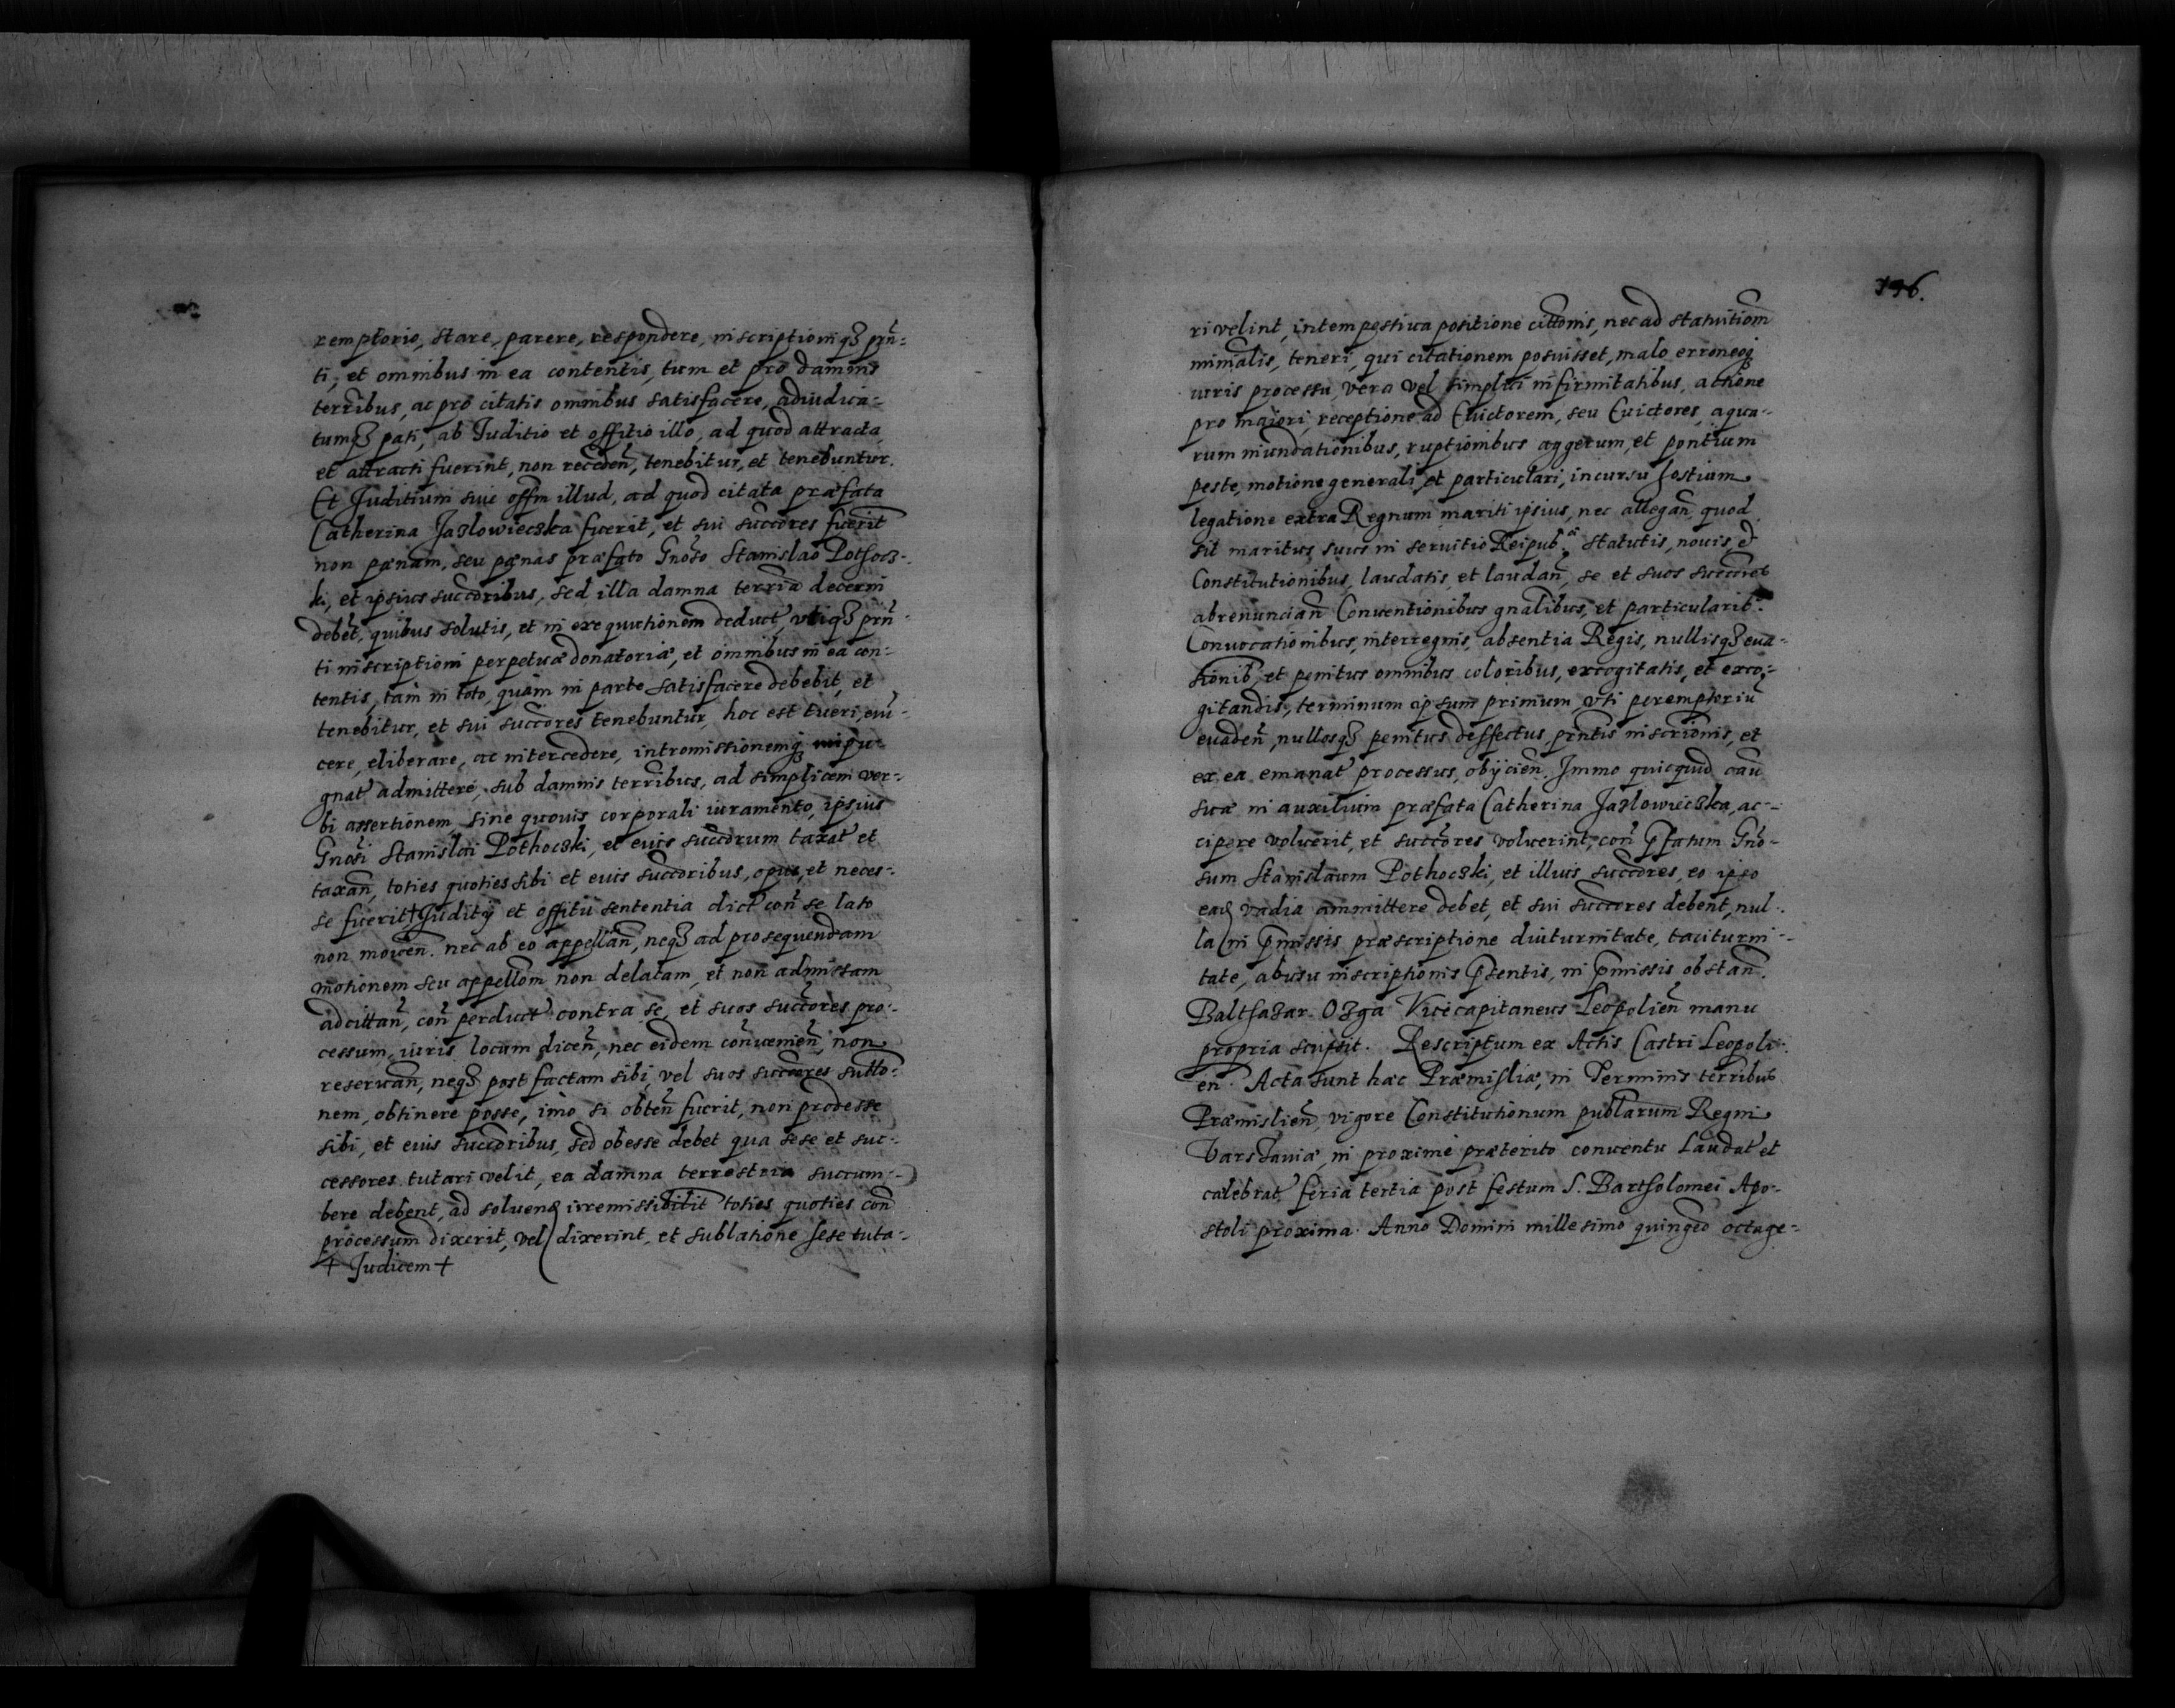 remptorio, stare, parere, respondere, inscriptioniqȝ pñ=
ti, et omnibus in ea contentis, tum et pro damnis
terribus, ac pro citatis omnibus satisfacere, adiudica=
tumqȝ pati, ab Juditio et offitio illo, ad quod attracta,
et attracti fuerint, non receden̄, tenebitur, et tenebuntur.
Et Juditium siue offm illud, ad quod citata præfata
Catherina Jaslowieczka fuerit, et sui succores fuerit
non pænam, seu pænas præfato Gnoso Stanislao Pothocz-
ki, et ipsius succoribus, sed illa damna terria decerni
debet, quibus solutis, et in exequutionem deduct, vtiqȝ pñ-
ti inscriptioni perpetuæ donatoriæ, et omnibus in ea con-
tentis, tam in toto, quàm in parte satisfacere debebit, et
tenebitur, et sui succores tenebuntur, hoc est tueri, eui-
cere, eliberare, ac intercedere, intromissionemqȝ
gnat admittere, sub damnis terribus, ad simplicem ver-
bi assertionem, sine quouis corporali iuramento, ipsius
Gnosi Stanislai Pothoczki, et euis succorum taxat et
taxan̄, toties quoties sibi et euis succoribus, opus, et neces-
se fuerit, + Juditij et offitii sententia dict con̄ se lato
non mouen̄. nec ab eo appellan̄, neqȝ ad prosequendam
motionem seu appellom non delatam, et non admissam
ad cittan̄, con̄ perduct contra se, et suos succores pro-
cessum, iuris locum dicen̄, nec eidem con̄uemen̄, non
reseruan̄, neqȝ post factam sibi, vel suos succores sutto-
nem, obtinere posse, imo si obten̄ fuerit, non prodesse
sibi, et euis succoribus, sed obesse debet qua sese et suc-
cessores tutari velit, ea damna terrestria succum-
bere debent, ad soluend irremissibilit toties quoties con̄
processum dixerit, vel dixerint, et sublatione sese tuta-
+ Judicem +
196.
ri velint, intempestiua positione cittonis, nec ad statuitiom
minimalis, teneri, qui citationem posuisset, malo erroneoqȝ
iuris processu, vera vel simplici infirmitatibus, actione
pro maiori, receptione ad Euictorem, seu Euictores, aqua-
rum inundationibus, ruptionibus aggerum, et pontium
peste, motione generali, et particulari, incursu hostium
legatione extra Regnum mariti ipsius, nec allegan̄ quod
sit maritus suus in seruitio Reipub. statutis, nouis, et
Constitutionibus, laudatis, et laudan̄, se et suos succores
abrenuncian̄ Conuentionibus gnalibus, et particularib.
Conuocationibus, interregnis, absentia Regis, nullisqȝ eua-
sionib, et penitus omnibus coloribus, excogitatis, et exco-
gitandis, terminum ipsum primum, vti peremptoriū
euaden̄, nullosqȝ penitus deffectus pñntis inscrionis, et
ex ea emanat processus, obijcien̄. Immo quicquid cau
suæ in auxilium præfata Catherina Jaslowieczka, ac-
cipere voluerit, et succores voluerint, con̄ pfatum Gno-
sum Stanislaum Pothoczki, et illius succores, eo ipso
ead vadia ammittere debet, et sui succores debent, nul-
la in pmissis præscriptione diuturnitate, taciturni-
tate, abusu inscriptionis psentis, in pmissis obstan̄.
Balthazar Ozga Vicecapitaneus Leopolien̄ manu
propria scripsit. Rescriptum ex Actis Castri Leopoli-
en. Acta sunt hæc Præmisliæ, in Terminis terribus
Præmislien̄, vigore Constitutionum publarum Regni
Varsauiæ, in proximè præterito conuentu Laudat et
calebrat, feria tertia post festum S. Bartholomei Apo-
stoli proxima. Anno Domini millesimo quingeo octage-